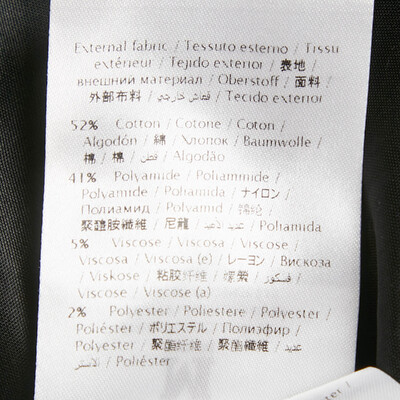 External fabric / Tessuto esterno / Tissu
extérieur / Tejido exterior / 表地 /
внешний материал / Oberstoff / 面料 /
外部布料 / قماش خارجي / Tecido exterior
52% Cotton / Cotone / Coton /
Algodón / 綿 / Хлопок / Baumwolle /
棉 / 棉 / قطن / Algodão
41% Polyamide / Poliammide /
Polyamide / Poliamida / ナイロン /
Полиамид / Polyamid / 锦纶 /
聚醯胺纖維 / 尼龍 / / Poliamida
5% Viscose / Viscosa / Viscose /
Viscosa / Viscosa (e) / レーヨン / Вискоза
/ Viskose / 粘胶纤维 / 嫘縈 / فسكوز /
Viscose / Viscose (a)
2% Polyester / Poliestere / Polyester /
Poliéster / ポリエステル / Полиэфир /
Polyester / 聚酯纤维 / 聚酯纖維 / عديد
الاستر / Poliéster
ter /